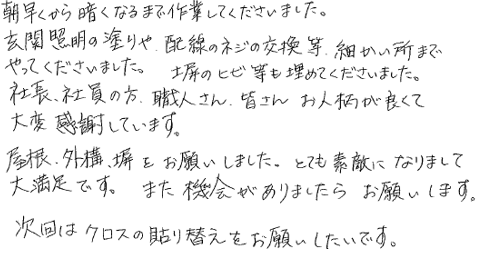 朝早くから暗くなるまで作業してくださいました。
玄関照明の塗りや、配線のネジの交換等、細かい所まで
やってくださいました。 塀のヒビ等も埋めてくださいました。
社長、社員の方、職人さん、皆さん お人柄が良くて
大変 感謝しています。
屋根、外構、塀を お願いしました。とても素敵に なりまして
大満足です。 また 機会がありましたら お願いします。
次回は クロスの貼り替えを お願いしたいです。